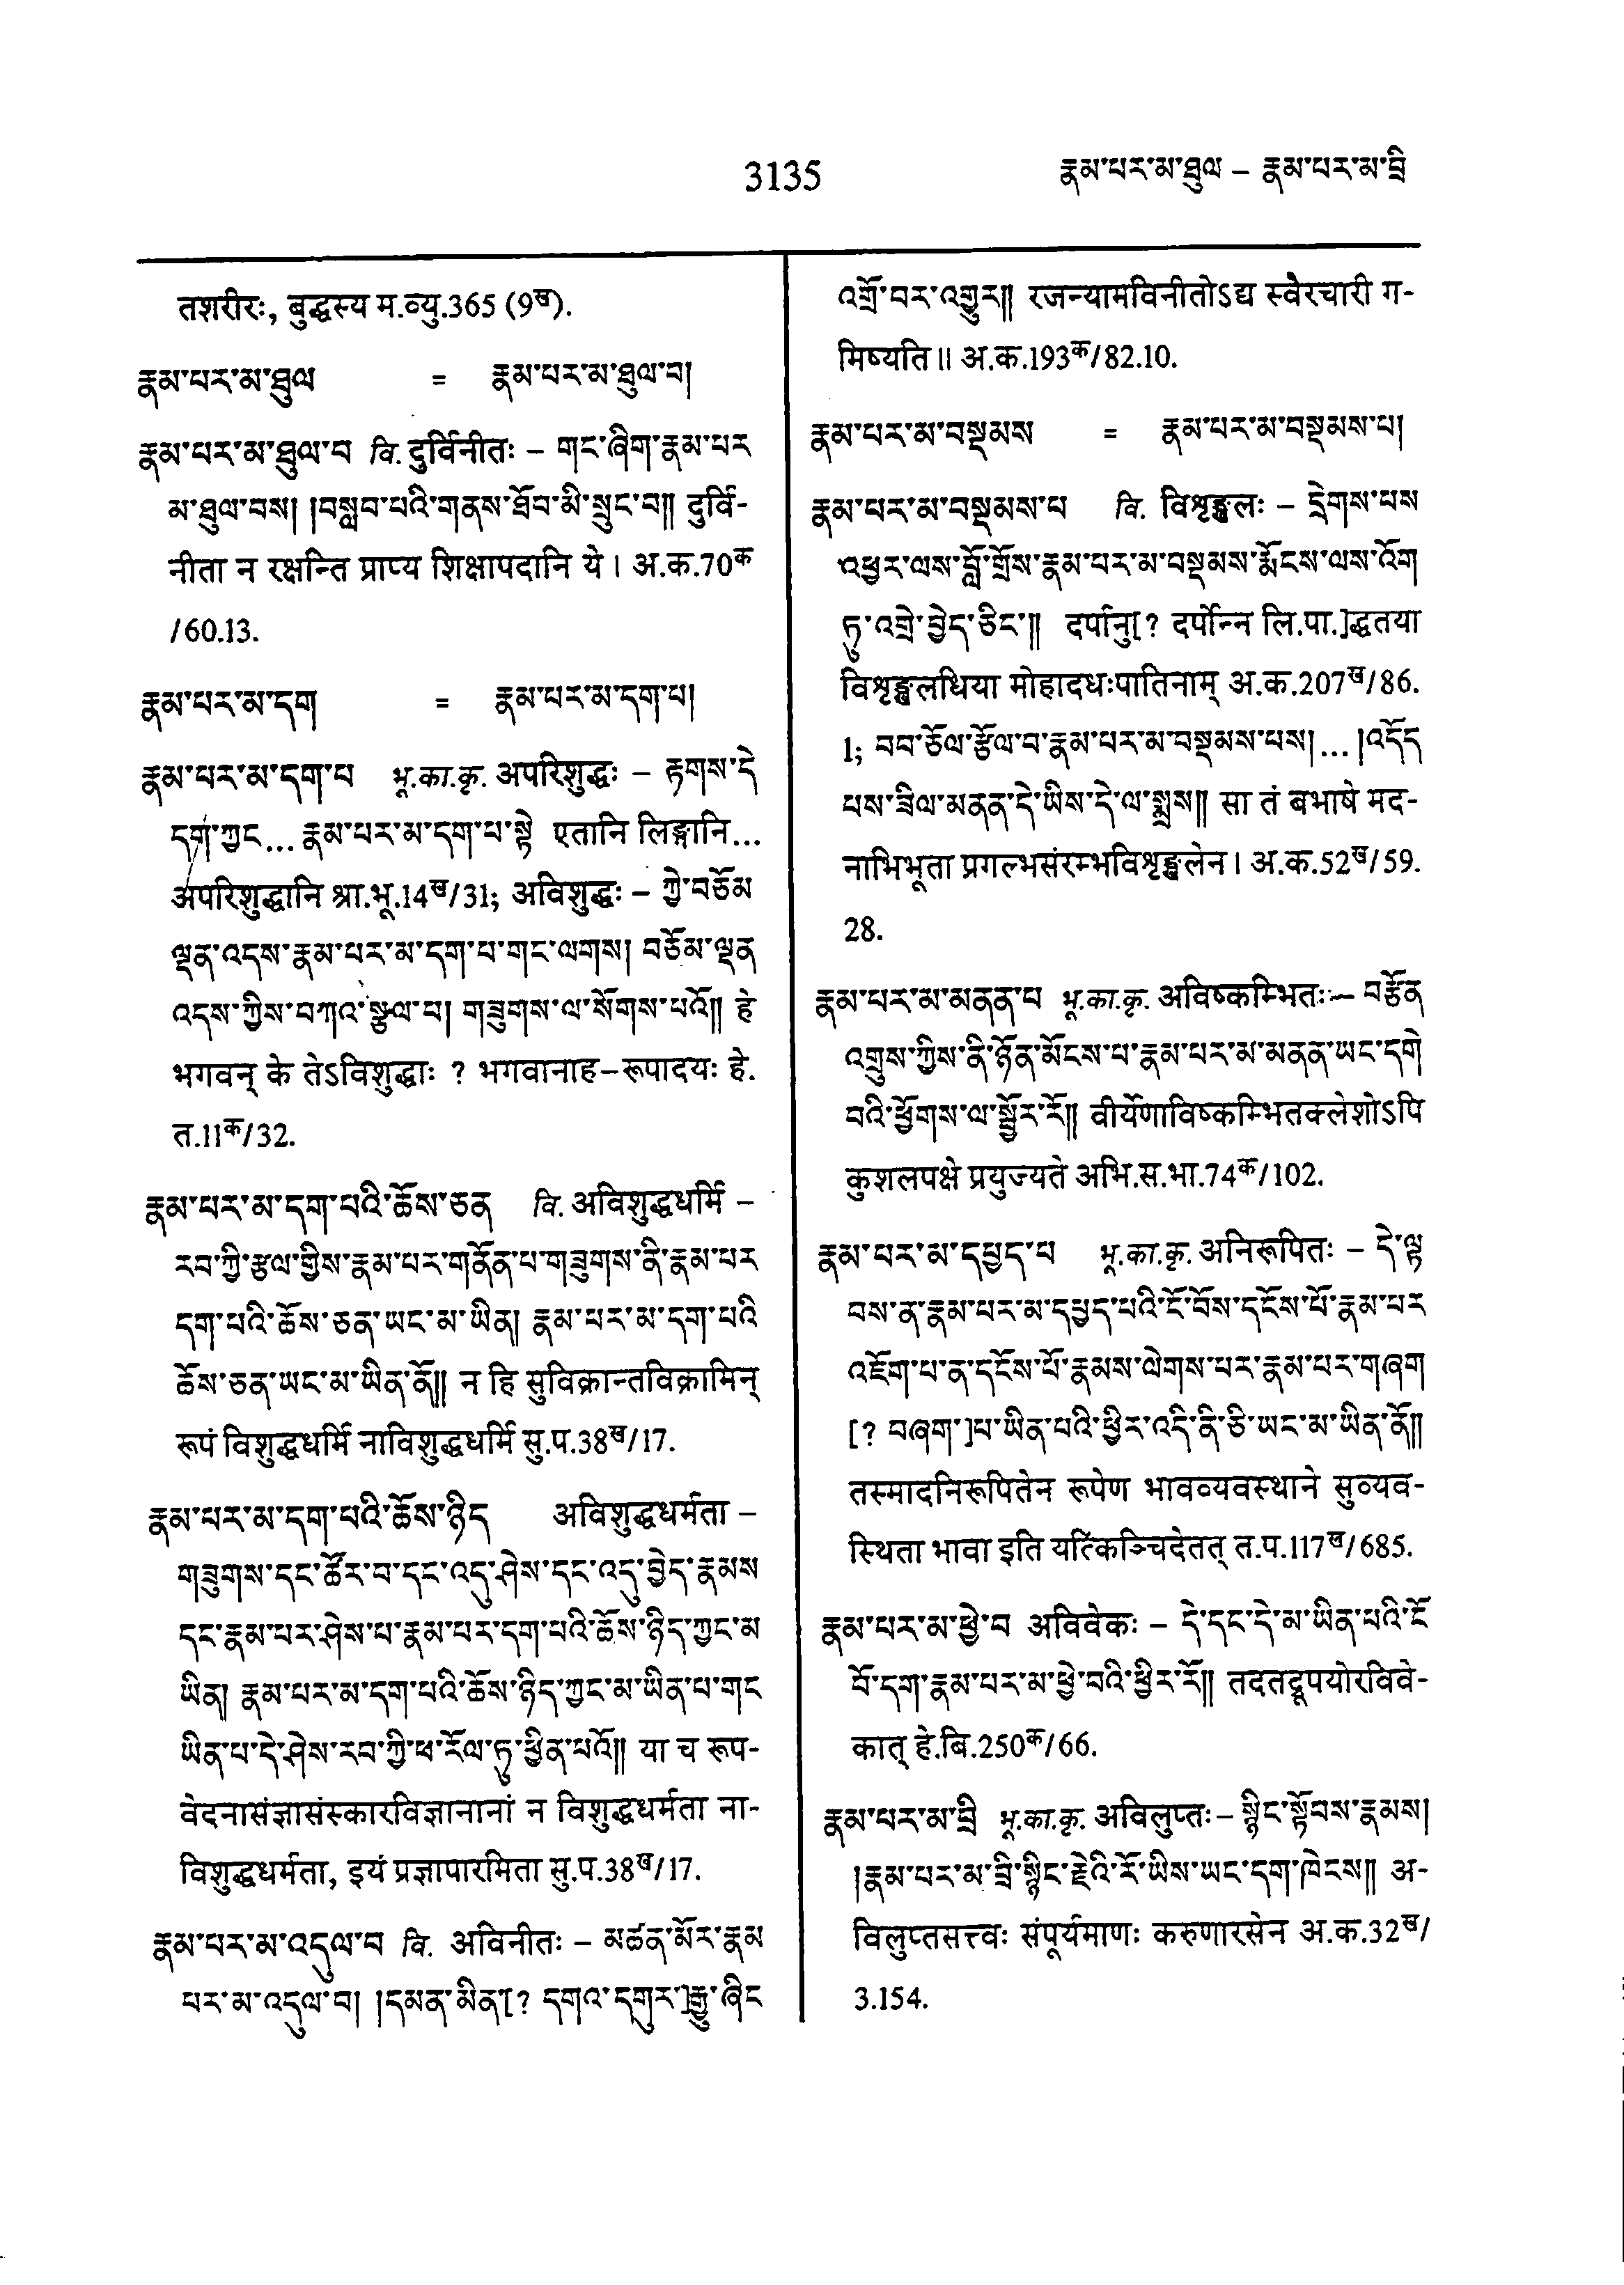 3135
རྣམ་པར་མ་ཐུལ – རྣམ་པར་མ་བྲི
तशरीरः, बुद्धस्य म.व्यु.365 (9ख).
རྣམ་པར་མ་ཐུལ = རྣམ་པར་མ་ཐུལ་བ།
རྣམ་པར་མ་ཐུལ་བ वि. दुर्विनीतः – གང་ཞིག་རྣམ་པར
མ་ཐུལ་བས། །བསླབ་པའི་གནས་ཐོབ་མི་སྲུང་བ༎ दुर्वि-
नीता न रक्षन्ति प्राप्य शिक्षापदानि ये । अ.क.70क
/60.13.
རྣམ་པར་མ་དག = རྣམ་པར་མ་དག་པ།
རྣམ་པར་མ་དག་པ भू.का.कृ. अपरिशुद्धः – རྟགས་དེ
དག་ཀྱང... རྣམ་པར་མ་དག་པ་སྟེ एतानि लिङ्गानि...
अपरिशुद्धानि श्रा.भू.14ख/31; अविशुद्धः – ཀྱེ་བཅོམ
ལྡན་འདས་རྣམ་པར་མ་དག་པ་གང་ལགས། བཅོམ་ལྡན
འདས་ཀྱིས་བཀའ་སྩལ་པ། གཟུགས་ལ་སོགས་པའོ༎ हे
भगवन् के तेऽविशुद्धाः ? भगवानाह–रूपादयः हे.
त.11क/32.
རྣམ་པར་མ་དག་པའི་ཆོས་ཅན वि. अविशुद्धधर्मि –
རབ་ཀྱི་རྩལ་གྱིས་རྣམ་པར་གནོན་པ་གཟུགས་ནི་རྣམ་པར
དག་པའི་ཆོས་ཅན་ཡང་མ་ཡིན། རྣམ་པར་མ་དག་པའི
ཆོས་ཅན་ཡང་མ་ཡིན་ནོ༎ न हि सुविक्रान्तविक्रामिन्
रूपं विशुद्धधर्मि नाविशुद्धधर्मि सु.प.38ख/17.
རྣམ་པར་མ་དག་པའི་ཆོས་ཉིད अविशुद्धधर्मता –
གཟུགས་དང་ཚོར་བ་དང་འདུ་ཤེས་དང་འདུ་བྱེད་རྣམས
དང་རྣམ་པར་ཤེས་པ་རྣམ་པར་དག་པའི་ཆོས་ཉིད་ཀྱང་མ
ཡིན། རྣམ་པར་མ་དག་པའི་ཆོས་ཉིད་ཀྱང་མ་ཡིན་པ་གང
ཡིན་པ་དེ་ཤེས་རབ་ཀྱི་ཕ་རོལ་ཏུ་ཕྱིན་པའོ༎ या च रूप-
वेदनासंज्ञासंस्कारविज्ञानानां न विशुद्धधर्मता ना-
विशुद्धधर्मता, इयं प्रज्ञापारमिता सु.प.38ख/17.
རྣམ་པར་མ་འདུལ་བ वि. अविनीतः – མཚན་མོར་རྣམ
པར་མ་འདུལ་བ། །དམན་མིན་[? དགའ་དགུར་]རྒྱུ་ཞིང
འགྲོ་བར་འགྱུར༎ रजन्यामविनीतोऽद्य स्वैरचारी ग-
मिष्यति ॥ अ.क.193क/82.10.
རྣམ་པར་མ་བསྡམས = རྣམ་པར་མ་བསྡམས་པ།
རྣམ་པར་མ་བསྡམས་པ वि. विशृङ्खलः – དྲེགས་པས
འཕྱར་ལས་བློ་གྲོས་རྣམ་པར་མ་བསྡམས་རྨོངས་ལས་འོག
ཏུ་འགྲེ་བྱེད་ཅིང་༎ दर्पानु[? दर्पोन्न लि.पा.]द्धतया
विशृङ्खलधिया मोहादधःपातिनाम् अ.क.207ख/86.
1; བབ་ཅོལ་རྩོལ་བ་རྣམ་པར་མ་བསྡམས་པས།... །འདོད
པས་ཟིལ་མནན་དེ་ཡིས་དེ་ལ་སྨྲས༎ सा तं बभाषे मद-
नाभिभूता प्रगल्भसंरम्भविशृङ्खलेन । अ.क.52ख/59.
28.
རྣམ་པར་མ་མནན་པ भू.का.कृ. अविष्कम्भितः – བརྩོན
འགྲུས་ཀྱིས་ནི་ཉོན་མོངས་པ་རྣམ་པར་མ་མནན་ཡང་དགེ
བའི་ཕྱོགས་ལ་སྦྱོར་རོ༎ वीर्येणाविष्कम्भितक्लेशोऽपि
कुशलपक्षे प्रयुज्यते अभि.स.भा.74क/102.
རྣམ་པར་མ་དཔྱད་པ भू.का.कृ. अनिरूपितः – དེ་ལྟ
བས་ན་རྣམ་པར་མ་དཔྱད་པའི་ངོ་བོས་དངོས་པོ་རྣམ་པར
འཇོག་པ་ན་དངོས་པོ་རྣམས་ལེགས་པར་རྣམ་པར་གཞག
[? བཞག་]པ་ཡིན་པའི་ཕྱིར་འདི་ནི་ཅི་ཡང་མ་ཡིན་ནོ༎
तस्मादनिरूपितेन रूपेण भावव्यवस्थाने सुव्यव-
स्थिता भावा इति यत्किञ्चिदेतत् त.प.117ख/685.
རྣམ་པར་མ་ཕྱེ་བ अविवेकः – དེ་དང་དེ་མ་ཡིན་པའི་ངོ
བོ་དག་རྣམ་པར་མ་ཕྱེ་བའི་ཕྱིར་རོ༎ तदतद्रूपयोरविवे-
कात् हे.बि.250क/66.
རྣམ་པར་མ་བྲི भू.का.कृ. अविलुप्तः – སྙིང་སྟོབས་རྣམས།
།རྣམ་པར་མ་བྲི་སྙིང་རྗེའི་རོ་ཡིས་ཡང་དག་ཁེངས༎ अ-
विलुप्तसत्त्वः संपूर्यमाणः करुणारसेन अ.क.32ख/
3.154.